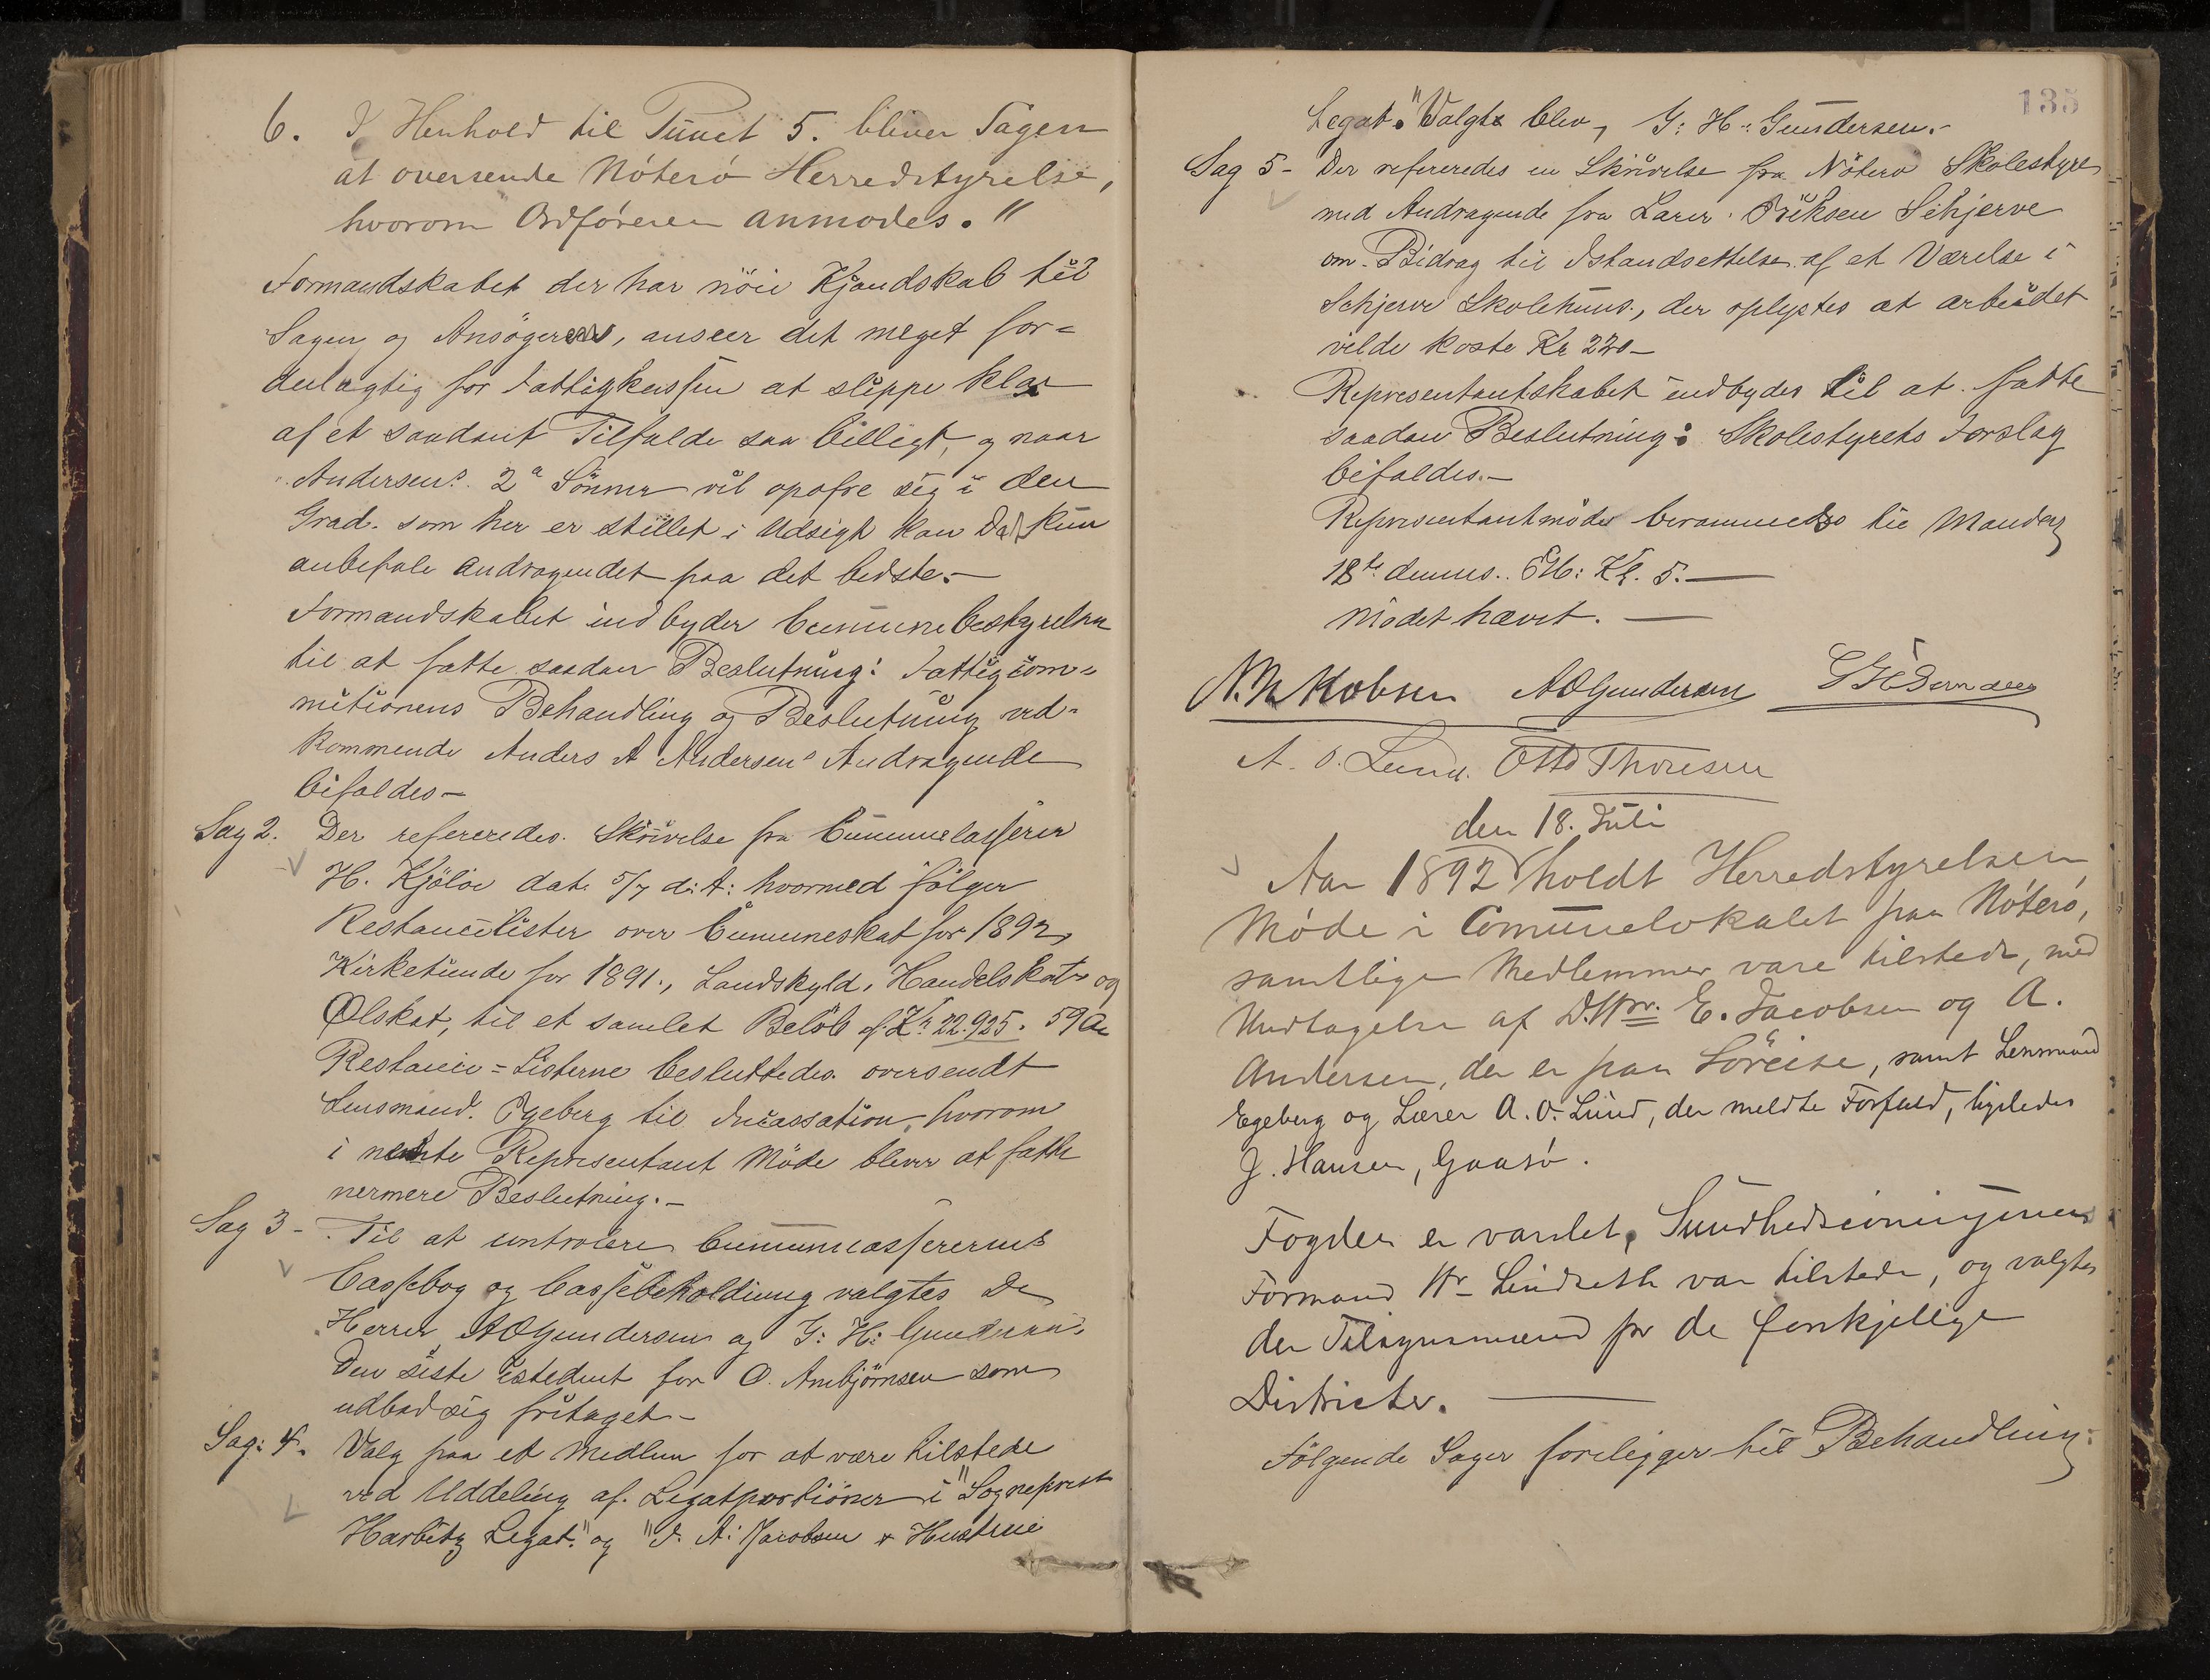 6. I Henhold til Punct 5. bliver Sagen
at oversende Nöterö Herredstyrelse,
hvorom Ordföreren anmodes."
Formandskabet der har nöie Kjendskab til
Sagen og Ansögeren, anseer det meget for=
delagtig for Fattigkassen at slippe klar
af et saadant Tilfælde saa billigt, og naar
Andersens 2a Sönner vil opofre sig i den
Grad som her er stillet i Udsigt kan Det kun
anbefale andragendet paa det bedste.-
Formandskabet indbyder Communebestyrelsen
til at fatte saadan Beslutning: Fattigcom-
mitionens Behandling og Beslutning ved-
kommende Anders A Andersens Andragende
bifaldes-
Sag 2. Der refereredes Skrivelse fra Communecasserer
H. Kjölöe dat. 5/7 d: A: hvormed fölger
Restancelister over Communeskat for 1892,
Kirketiende for 1891., Landskyld, Handelskat og
Ølskat, til et samlet Belöb af Kr 22.925. 59 Øre
Restance=Listerne besluttedes oversendt
Lensmand Egeberg til Incassation, hvorom
i neste Representant Möde bliver at fatte
nermere Beslutning.-
Sag 3- Til at controlere Communecassererens
Cassebog og Cassebeholdning valgtes De
Herrer AOGundersen og G: H: Gundersen,
Den siste istedent for O. Ambjörnsen som
udbad sig fritaget-
Sag: 4. Valg paa et Medlem for at være tilstede
ved Uddeling af Legatportioner i "Sogneprest
Harbitz Legat." og "J. A: Jacobsen & Hustrue
135
Legat." Valgt blev, G: H: Gundersen.-
Sag 5- Der refereredes en Skrivelse fra Nöterö Skolestyre
med Andragende fra Lærer Eriksen Schjerve
om Bidrag til Istandsettelse af et Værelse i
Schjerve Skolehuus, der oplystes at arbeidet
vilde koste Kr 220-
Representantskabet indbydes til at fatte
saadan Beslutning: Skolestyrets Forslag
bifaldes.-
Representantmöde berammedes til Mandag
18te dennes. EM: Kl. 5.-
Mödet hævet.-
AOGundersen
A. O. Lund. Otto Thoresen
den 18. Juli
Aar 1892 holdt Herredstyrelsen
Möde i Communelokalet paa Nöterö,
samtlige Medlemmer vare tilstede, med
Undtagelse af D'Hrr. E. Jacobsen og A.
Andersen, der er paa Söreise, samt Lensmand
Egeberg og Lærer A. O. Lund, der meldte Forfald, ligeledes
J. Hansen, Gaasö.
Fogden er varslet, Sundhedscomissionens
Formand Hr Lindseth var tilstede, og valgtes
der Tilsynsmænd for de forskjellige
Districter.
Fölgende Sager foreligger til Behandling: